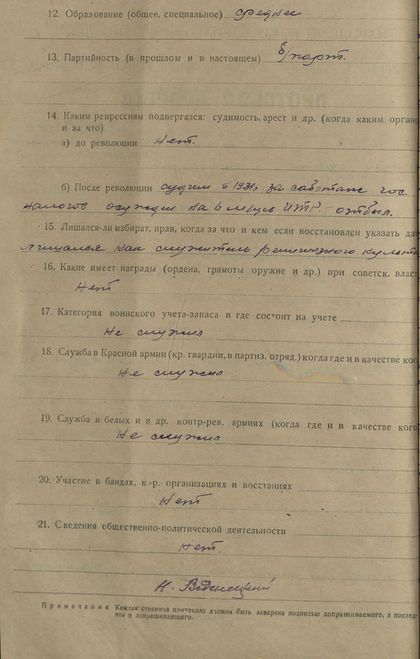 12. Образование (общее, специальное) среднее
13. Партийность (в прошлом и в настоящем) б/парт.
14. Каким репрессиям подвергался: судимость, арест и др. (когда каким орган
и за что)
а) до революции Нет.
б) После революции судим в 1931г за саботаж гос
налогов осужден на 6 м-цев ИТР. отбыл.
15. Лишался-ли избират. прав, когда за что и кем если восстановлен указать да
лишался как служитель религиозного культа
16. Какие имеет награды (ордена, грамоты оружие и др.) при советск. влас
Нет
17. Категория воинского учета-запаса и где состоит на учете
Не служил
18. Служба в Красной армии (кр. гвардии, в партиз. отряд.) когда где и в качестве ко
Не служил
19. Служба в белых и в др. контр-рев. армиях (когда где и в качестве кого
Не служил
20. Участие в бандах, к.-р. организациях и восстаниях
Нет
21. Сведения общественно-политической деятельности
Нет.
Н.
Примечание Каждая страница протокола должна быть заверена подписью допрашиваемого, а послед-
няя и допрашивающего.